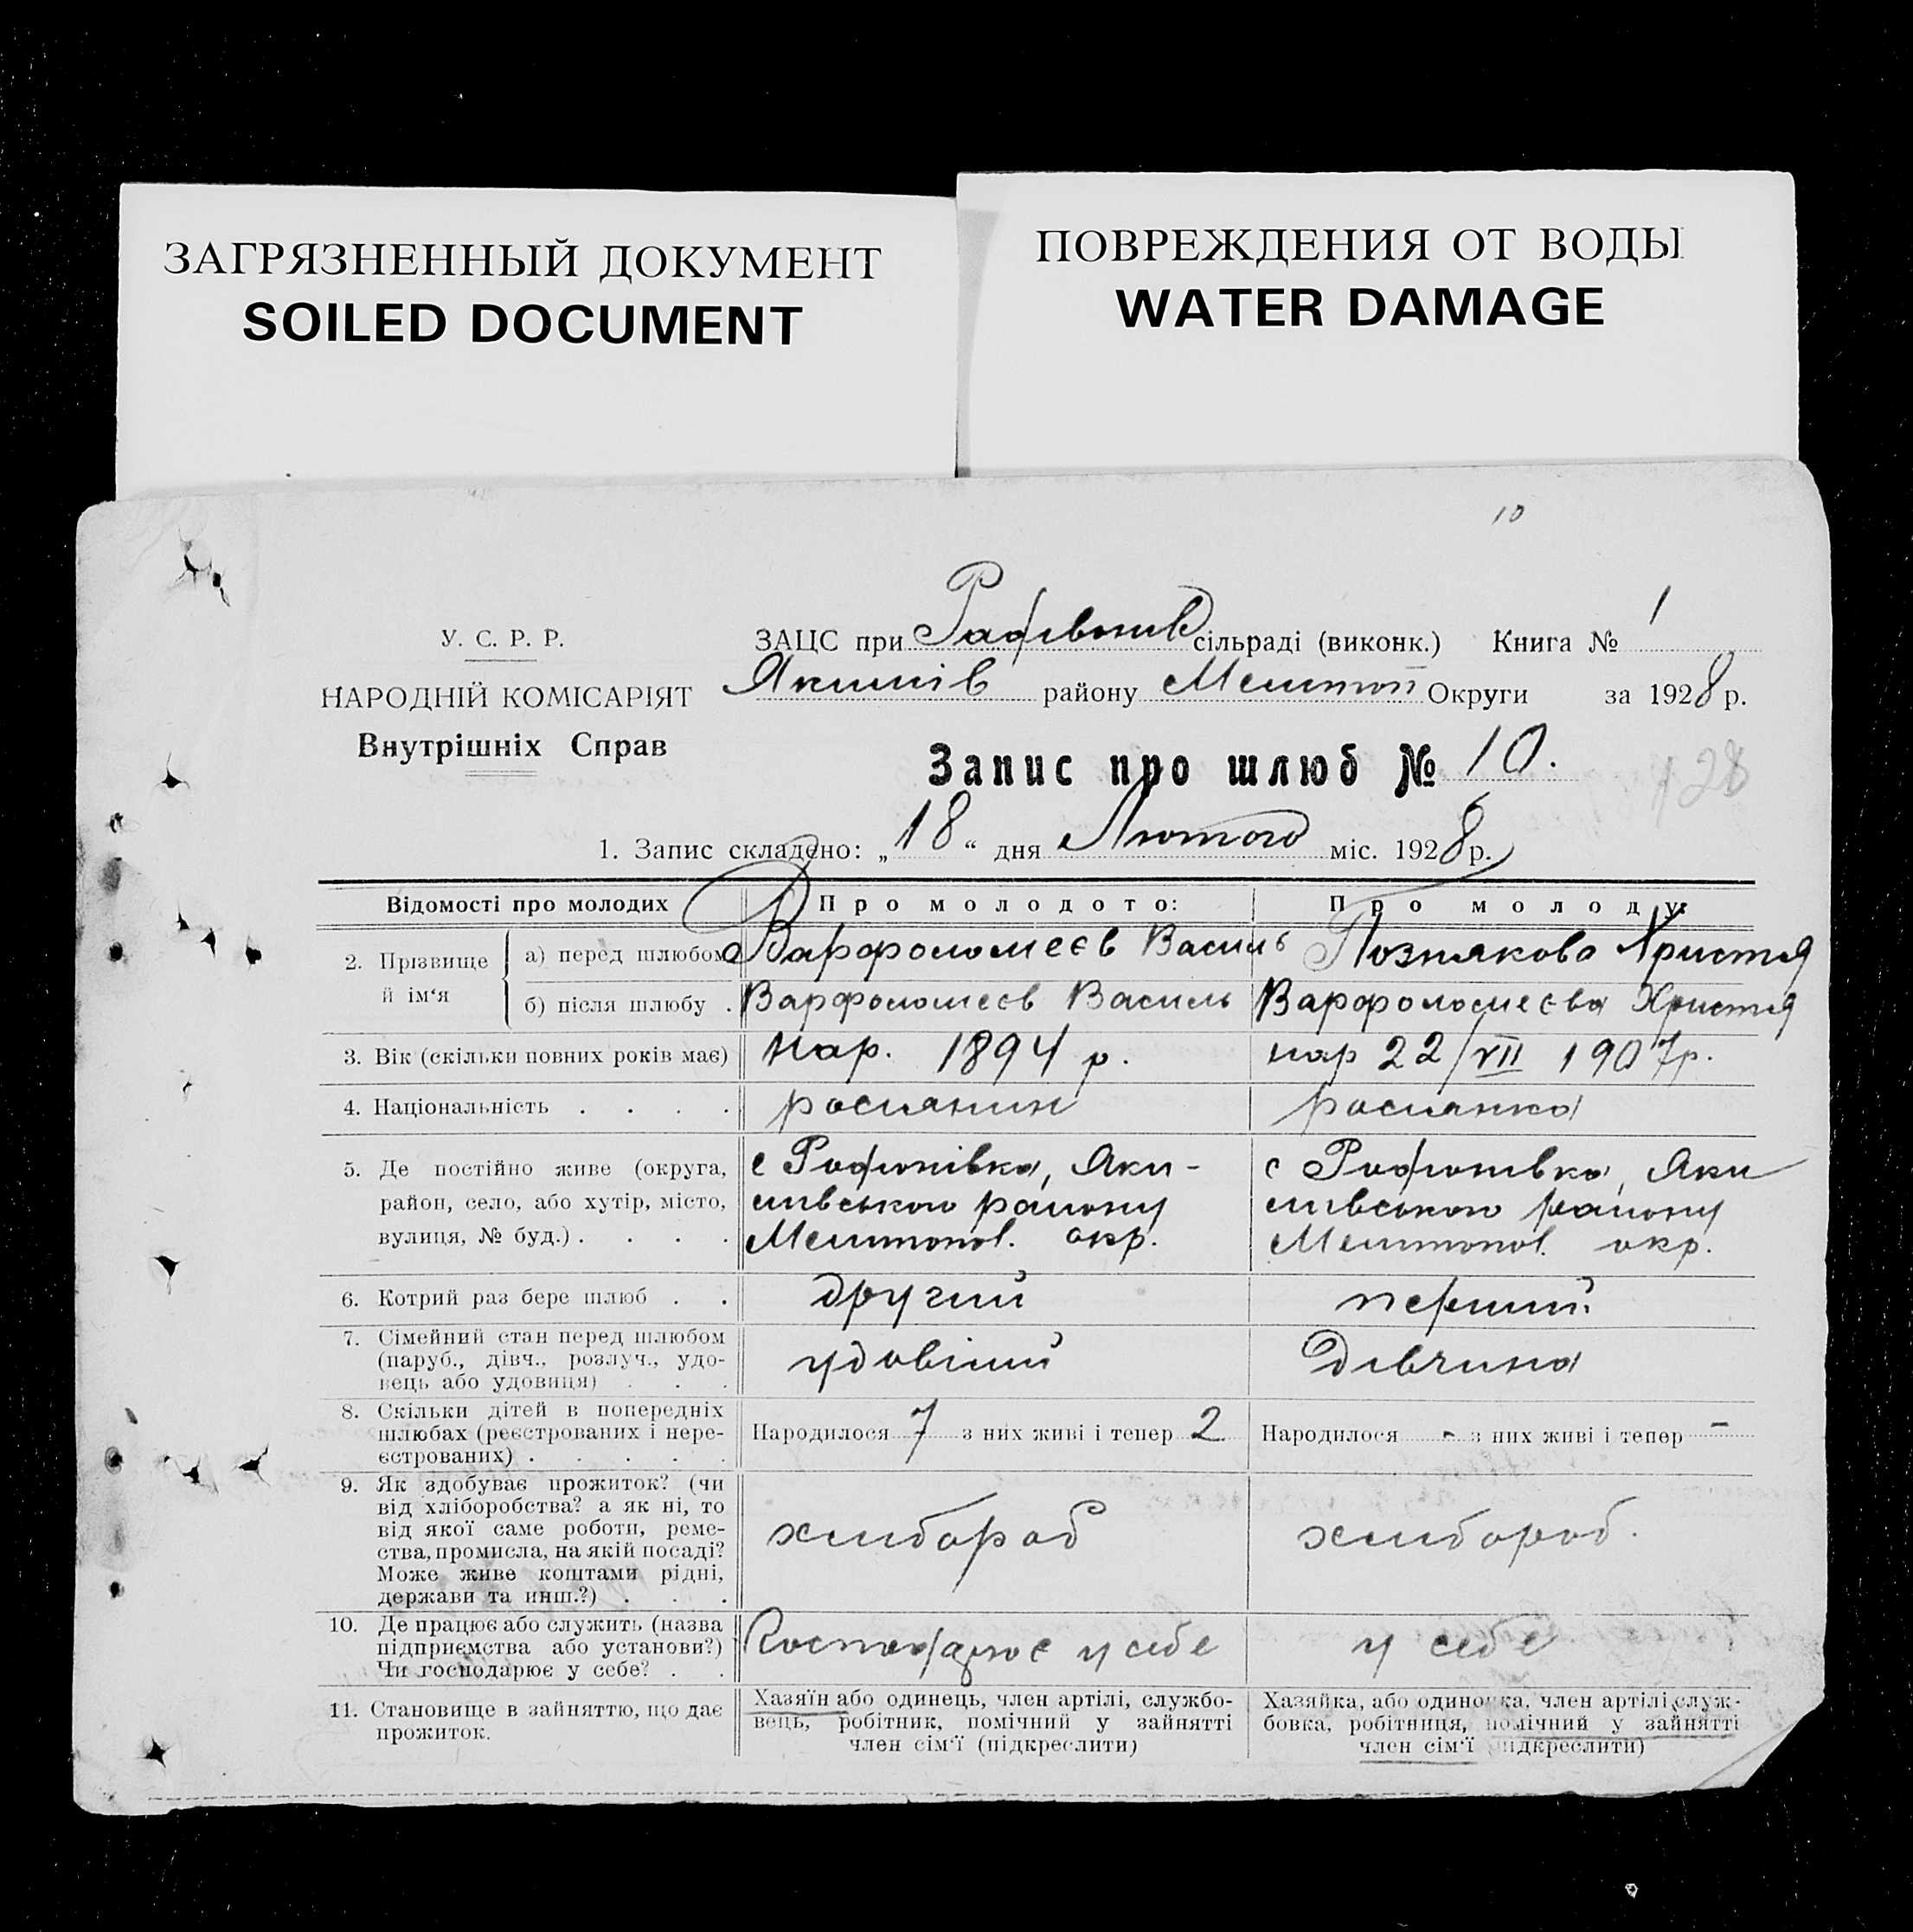 ЗАГРЯЗНЕННЫЙ ДОКУМЕНТ
SOILED DOCUMENT
ПОВРЕЖДЕНИЯ ОТ ВОДЫ
WATER DAMAGE
10
У. С. Р. Р.
НАРОДНІЙ КОМІСАРІЯТ
Внутрішніх Справ
ЗАЦС при сільраді (виконк.) Книга № 1
Якимів району Мелитоп Округи за 1928 р.
Запис про шлюб № 10.
128
1. Запис складено: „18“ дня Лютого міс. 1928 р.
Відомості про молодих
Про молодого:
Про молоду:
2. Прізвище й ім‘я
а) перед шлюбом Варфоломеєв Василь Познякова Христя
б) після шлюбу . Варфоломеєв Василь Варфоломеєва Христя
3. Вік (скільки повних років має) нар. 1894 р. нар 22/VII 1907р.
4. Національність . . . . росиянин росиянка
5. Де постійно живе (округа,
район, село, або хутір, місто,
вулиця, № буд.) . . . .
с Рафионівка, Яки-
мивського району
Мелитопол. окр.
с Рафионивка, Яки
мивського району
Мелитопол. окр.
6. Котрий раз бере шлюб . . другий перший.
7. Сімейний стан перед шлюбом
(паруб., дівч., розлуч., удо-
вець або удовиця) . . .
удовіций
Дивчина
8. Скільки дітей в попередніх
шлюбах (реєстрованих і нере-
єстрованих) . . . . .
Народилося 7 з них живі і тепер 2
Народилося - з них живі і тепер -
9. Як здобуває прожиток? (чи
від хліборобства? а як ні, то
від якої саме роботи, реме-
ства, промисла, на якій посаді?
Може живе коштами рідні,
держави та инш.?) . . .
хлибороб
хлибороб.
10. Де працює або служить (назва
підприємства або установи?)
Чи господарює у себе? . .
Господарює у себе
у себе
11. Становище в зайняттю, що дає
прожиток.
Хазяїн або одинець, член артілі, службо-
вець, робітник, помічний у зайнятті
член сім‘ї (підкреслити)
Хазяйка, або одиночка, член артілі, служ-
бовка, робітниця, помічний у зайнятті
член сім‘ї (підкреслити)